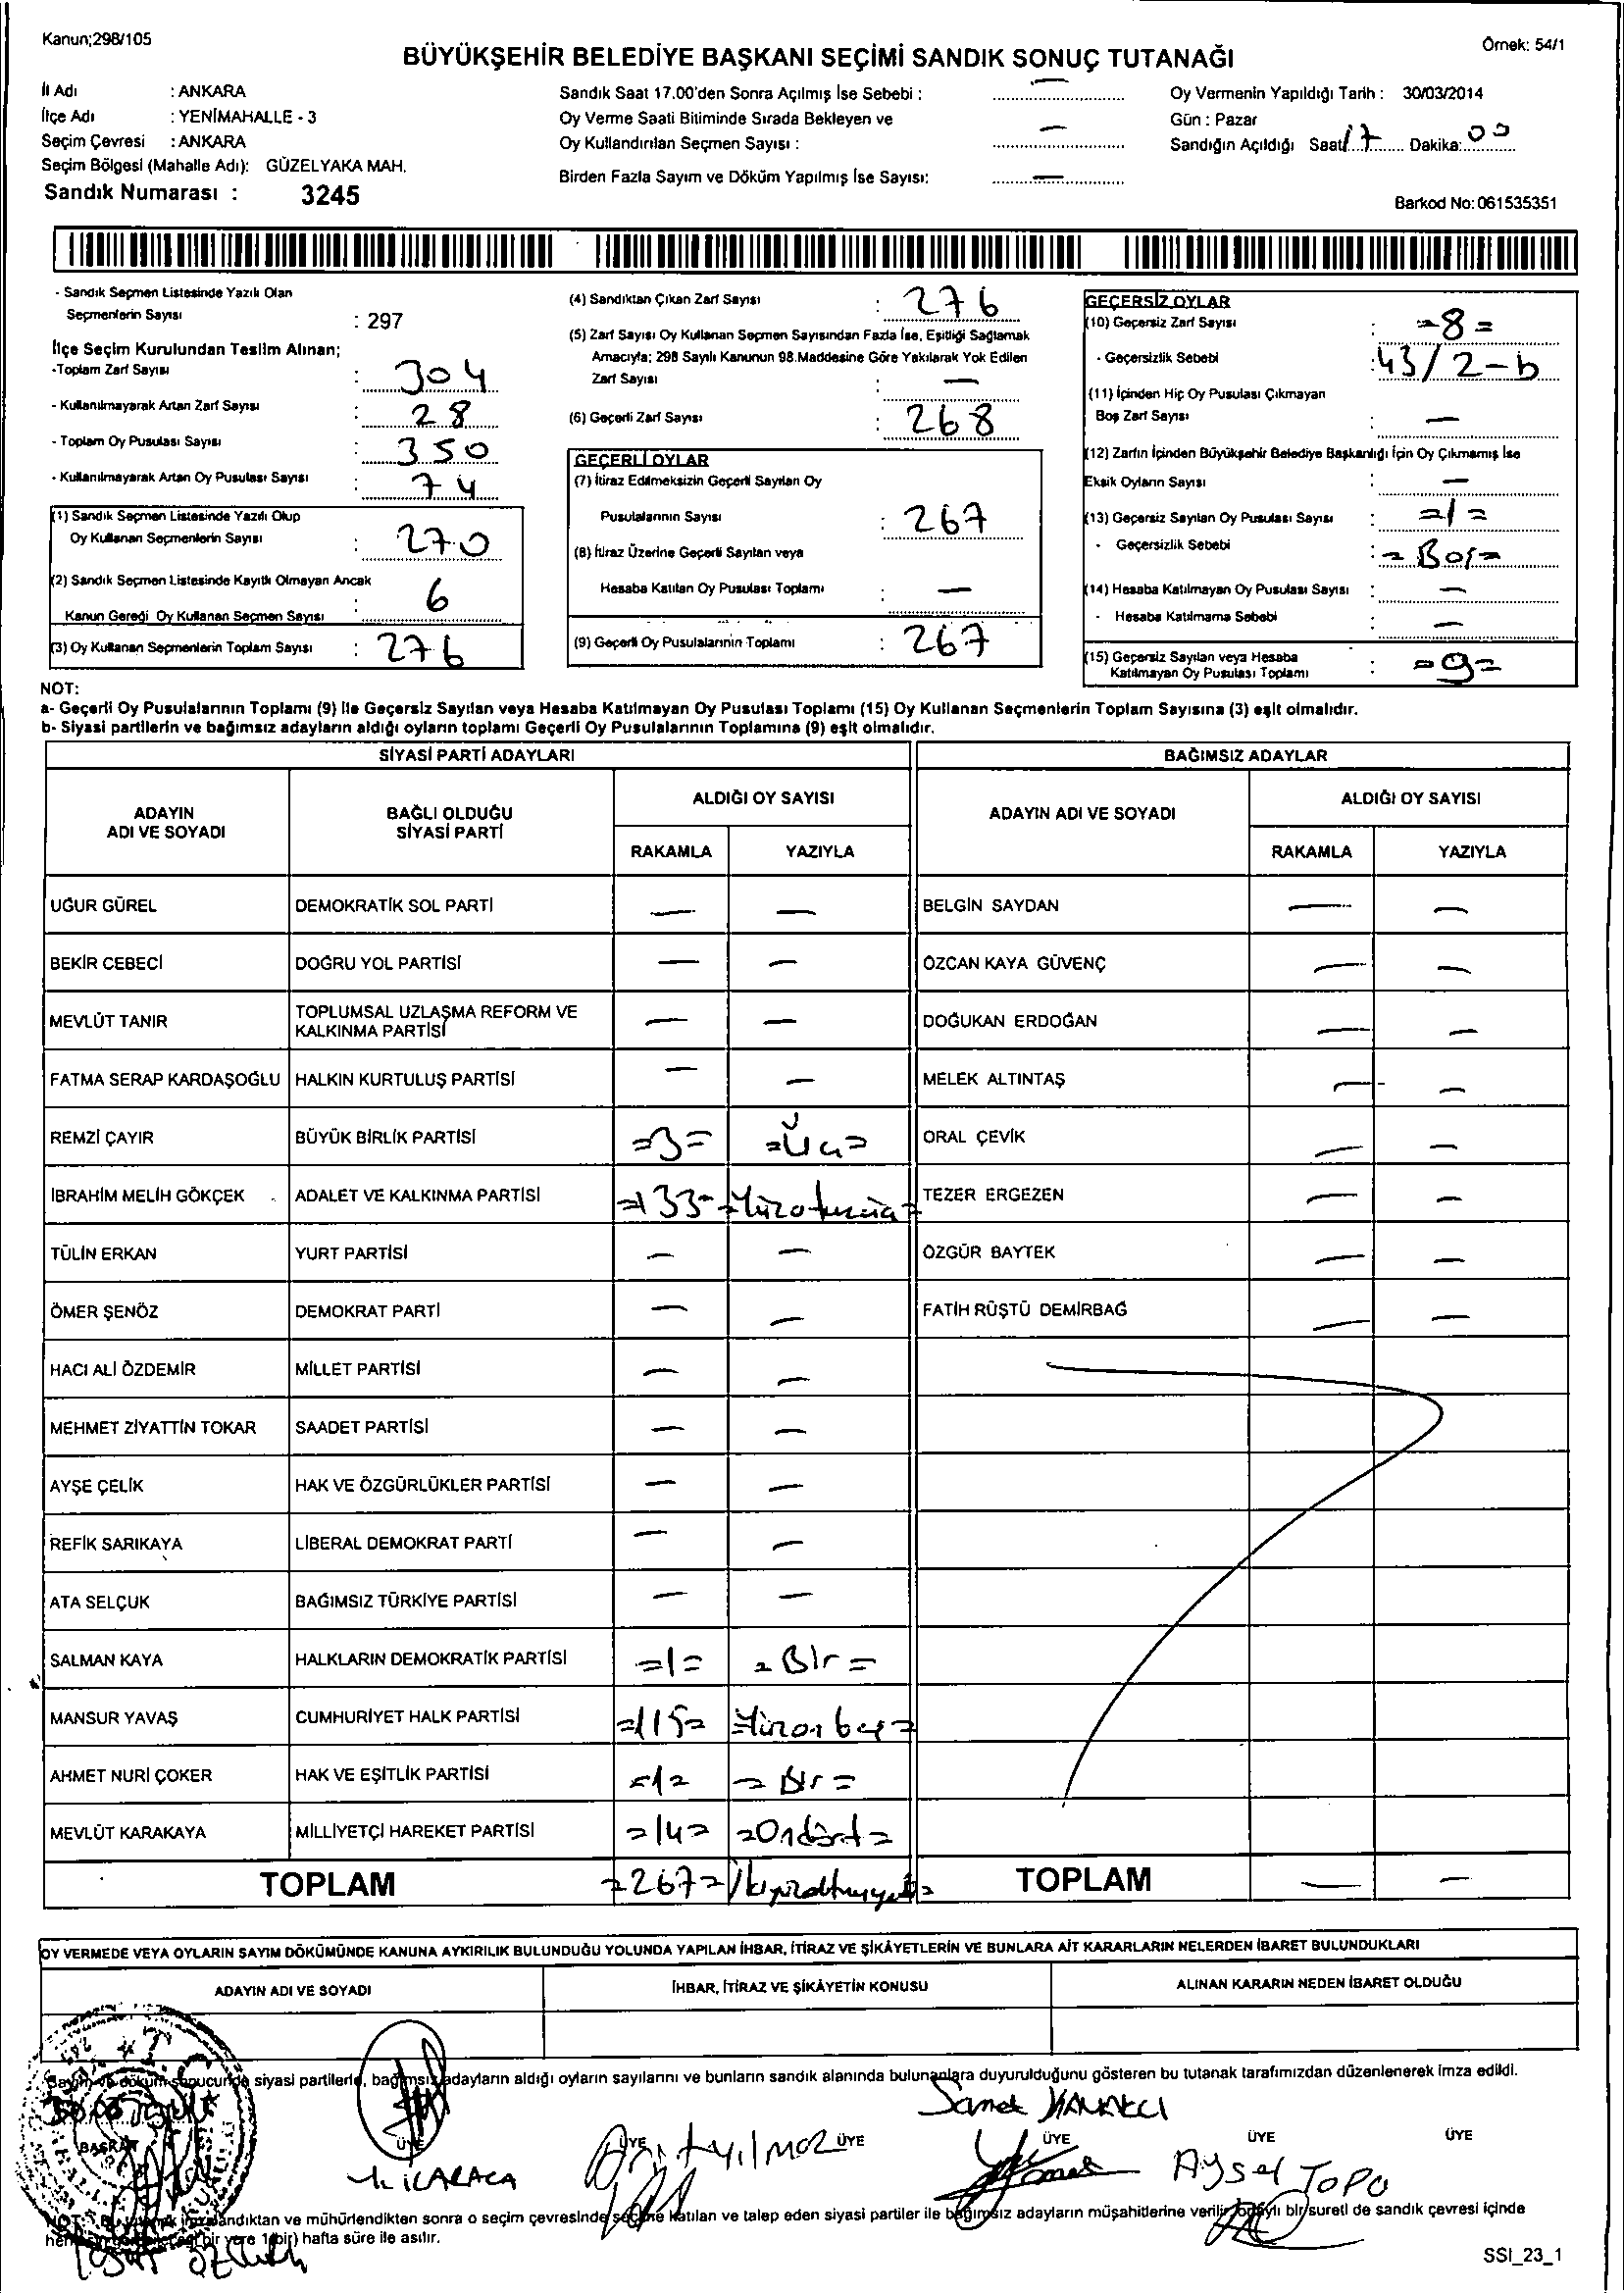 Kanun;298/105
Örnek: 54/1
BÜYÜKŞEHİR BELEDİYE BAŞKANI SEÇİMİ SANDIK SONUÇ TUTANAĞI
İl Adı : ANKARA
İlçe Adı : YENİMAHALLE - 3
Seçim Çevresi : ANKARA
Seçim Bölgesi (Mahalle Adı): GÜZELYAKA MAH.
Sandık Numarası : 3245
Sandık Saat 17.00'den Sonra Açılmış İse Sebebi : —
Oy Verme Saati Bitiminde Sırada Bekleyen ve
Oy Kullandırılan Seçmen Sayısı : —
Birden Fazla Sayım ve Döküm Yapılmış İse Sayısı: —
Oy Vermenin Yapıldığı Tarih : 30/03/2014
Gün : Pazar
Sandığın Açıldığı Saat: 17 Dakika: 00
Barkod No: 061535351
- Sandık Seçmen Listesinde Yazılı Olan
Seçmenlerin Sayısı : 297
İlçe Seçim Kurulundan Teslim Alınan;
-Toplam Zarf Sayısı : 304
- Kullanılmayarak Artan Zarf Sayısı : 28
- Toplam Oy Pusulası Sayısı : 350
- Kullanılmayarak Artan Oy Pusulası Sayısı : 74
(1) Sandık Seçmen Listesinde Yazılı Olup
Oy Kullanan Seçmenlerin Sayısı : 270
(2) Sandık Seçmen Listesinde Kayıtlı Olmayan Ancak
Kanun Gereği Oy Kullanan Seçmen Sayısı : 6
(3) Oy Kullanan Seçmenlerin Toplam Sayısı : 276
(4) Sandıktan Çıkan Zarf Sayısı : 276
(5) Zarf Sayısı Oy Kullanan Seçmen Sayısından Fazla İse, Eşitliği Sağlamak
Amacıyla; 298 Sayılı Kanunun 98.Maddesine Göre Yakılarak Yok Edilen
Zarf Sayısı : —
(6) Geçerli Zarf Sayısı : 268
GEÇERLİ OYLAR
(7) İtiraz Edilmeksizin Geçerli Sayılan Oy
Pusulalarının Sayısı : 267
(8) İtiraz Üzerine Geçerli Sayılan veya
Hesaba Katılan Oy Pusulası Toplamı : —
(9) Geçerli Oy Pusulalarının Toplamı : 267
GEÇERSİZ OYLAR
(10) Geçersiz Zarf Sayısı : =8=
- Geçersizlik Sebebi : 43/2-b
(11) İçinden Hiç Oy Pusulası Çıkmayan
Boş Zarf Sayısı —
(12) Zarfın İçinden Büyükşehir Belediye Başkanlığı İçin Oy Çıkmamış İse
Eksik Oyların Sayısı : —
(13) Geçersiz Sayılan Oy Pusulası Sayısı : =1=
- Geçersizlik Sebebi : =Boş=
(14) Hesaba Katılmayan Oy Pusulası Sayısı : —
- Hesaba Katılmama Sebebi : —
(15) Geçersiz Sayılan veya Hesaba
Katılmayan Oy Pusulası Toplamı : =9=
NOT:
a- Geçerli Oy Pusulalarının Toplamı (9) ile Geçersiz Sayılan veya Hesaba Katılmayan Oy Pusulası Toplamı (15) Oy Kullanan Seçmenlerin Toplam Sayısına (3) eşit olmalıdır.
b- Siyasi partilerin ve bağımsız adayların aldığı oyların toplamı Geçerli Oy Pusulalarının Toplamına (9) eşit olmalıdır.
SİYASİ PARTİ ADAYLARI BAĞIMSIZ ADAYLAR
ADAYIN ADI VE SOYADI BAĞLI OLDUĞU SİYASİ PARTİ ALDIĞI OY SAYISI ADAYIN ADI VE SOYADI ALDIĞI OY SAYISI
RAKAMLA YAZIYLA RAKAMLA YAZIYLA
UĞUR GÜREL DEMOKRATİK SOL PARTİ — — BELGİN SAYDAN — —
BEKİR CEBECİ DOĞRU YOL PARTİSİ — — ÖZCAN KAYA GÜVENÇ — —
MEVLÜT TANIR TOPLUMSAL UZLAŞMA REFORM VE KALKINMA PARTİSİ — — DOĞUKAN ERDOĞAN — —
FATMA SERAP KARDAŞOĞLU HALKIN KURTULUŞ PARTİSİ — — MELEK ALTINTAŞ — —
REMZİ ÇAYIR BÜYÜK BİRLİK PARTİSİ =3= =Üç= ORAL ÇEVİK — —
İBRAHİM MELİH GÖKÇEK ADALET VE KALKINMA PARTİSİ =133= =Yüzotuzüç= TEZER ERGEZEN — —
TÜLİN ERKAN YURT PARTİSİ — — ÖZGÜR BAYTEK — —
ÖMER ŞENÖZ DEMOKRAT PARTİ — — FATİH RÜŞTÜ DEMİRBAĞ — —
HACI ALİ ÖZDEMİR MİLLET PARTİSİ — —
MEHMET ZİYATTİN TOKAR SAADET PARTİSİ — —
AYŞE ÇELİK HAK VE ÖZGÜRLÜKLER PARTİSİ — —
REFİK SARIKAYA LİBERAL DEMOKRAT PARTİ — —
ATA SELÇUK BAĞIMSIZ TÜRKİYE PARTİSİ — —
SALMAN KAYA HALKLARIN DEMOKRATİK PARTİSİ =1= =Bir=
MANSUR YAVAŞ CUMHURİYET HALK PARTİSİ =115= =Yüzonbeş=
AHMET NURİ ÇOKER HAK VE EŞİTLİK PARTİSİ =1= =Bir=
MEVLÜT KARAKAYA MİLLİYETÇİ HAREKET PARTİSİ =14= =Ondört=
TOPLAM =267= İkiyüzaltmışyedi= TOPLAM — —
OY VERMEDE VEYA OYLARIN SAYIM DÖKÜMÜNDE KANUNA AYKIRILIK BULUNDUĞU YOLUNDA YAPILAN İHBAR, İTİRAZ VE ŞİKÂYETLERİN VE BUNLARA AİT KARARLARIN NELERDEN İBARET BULUNDUKLARI
ADAYIN ADI VE SOYADI İHBAR, İTİRAZ VE ŞİKÂYETİN KONUSU ALINAN KARARIN NEDEN İBARET OLDUĞU
Sayım ve döküm sonucunda siyasi partilerle, bağımsız adayların aldığı oyların sayılarını ve bunların sandık alanında bulunanlara duyurulduğunu gösteren bu tutanak tarafımızdan düzenlenerek imza edildi.
BAŞKAN ÜYE ÜYE ÜYE ÜYE ÜYE ÜYE
KARACA
Aysel TOPU
sandıktan ve mühürlendikten sonra o seçim çevresinde seçime katılan ve talep eden siyasi partiler ile bağımsız adayların müşahitlerine verilir, onaylı bir sureti de sandık çevresi içinde
bir yere 1(bir) hafta süre ile asılır.
ÖZTÜRK
SSI_23_1